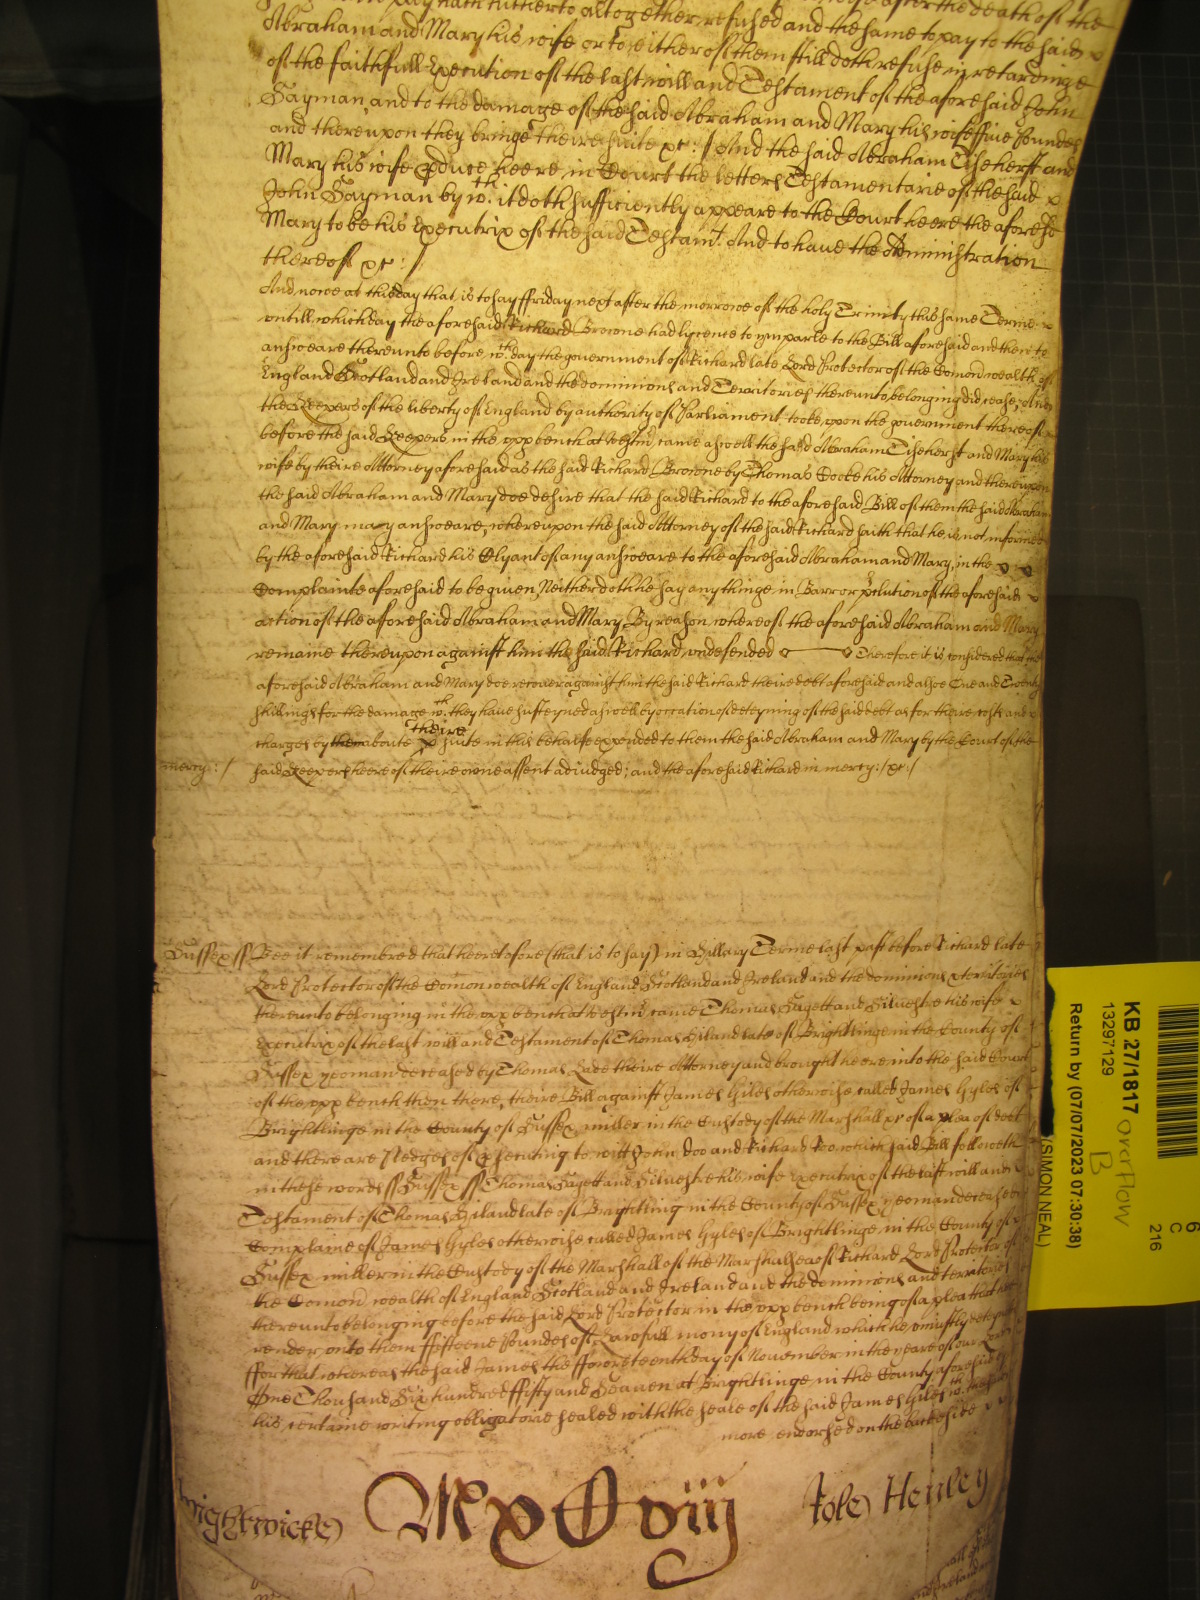 pay hath hitherto altogether refused and the same to pay to the said
Abraham and Mary his wife or to either of them still doth refuse in retardinge
of the faithfull Execution of the last will and Testament of the aforesaid John
Sayman, and to the damage of the said Abraham and Mary his wife ffive Poundes
and thereupon they bringe theire suite &c: / And the said Abraham Tisehurst and
Mary his wife p'duce heere in Court the letters Testamentarie of the said
John Sayman by wth. it doth sufficiently appeare to the Court heere the aforesd
Mary to be his Executrix of the said Testamt. And to haue the Administration
thereof &c: /
And nowe at this day that is to say ffriday next after the morrowe of the holy Trinity this same Terme
vntill which day the aforesaid Richard Browne had lycence to imparle to the Bill aforesaid and then to
answeare thereunto before wth. day the government of Richard late Lord Protector of the Comonwealth of
England Scotland and Ireland and the dominions and Territories thereunto belonging did cease, And
the Keepers of the liberty of England by authority of Parliament tooke vpon the government thereof
before the said Keepers in the vpp bench at Westm' came aswell the said Abraham Tisehurst and Mary his
wife by theire Attorney aforesaid as the said Richard Browne by Thomas Cooke his Attorney and thereupon
the said Abraham and Mary doe desire that the said Richard to the aforesaid Bill of them the said Abraham
and Mary may answeare, whereupon the said Attorney of the said Richard saith that he is not informed
by the aforesaid Richard his Clyant of any answeare to the aforesaid Abraham and Mary, in the
Complainte aforesaid to be giuen, Neither doth he say any thinge in Barr or p'clution of the aforesaid
action of the aforesaid Abraham and Mary, By reason whereof the aforesaid Abraham and Mary
remaine thereupon against him the said Richard vndefended Therefore it is considered that the
aforesaid Abraham and Mary doe recouer against him the said Richard theire debt aforesaid and alsoe One and Twenty
shillings for the damage wth. they haue susteyned aswell by occation of deteyning of the said debt as for there costs and
theire
charges by them aboute suite in this behalfe expended to them the said Abraham and Mary by the Court of the
mercy: / said Keepers heere of theire owne assent adiudged; and the aforesaid Richard in mercy: / &c: /
Sussex ss Bee it remembred that heretofore (that is to say) in Hillary Terme last past before Richard late
Lord Protector of the Comonwealth of England Scotland and Ireland and the dominions & territories
thereunto belonging in the vpp bench at Westm' came Thomas Hagett and Siluestre his wife
Executrix of the last will and Testament of Thomas Hiland late of Brightlinge in the County of
Sussex yeoman deceased by Thomas Lade theire Attorney and brought heere into the said Court
of the vpp bench then there, theire Bill against James Giles otherwise called James Gyles of
Brightlinge in the County of Sussex miller in the Custody of the Marshall &c of a plea of debt
and there are Pledges of p'secuting to witt John doo and Richard Roo which said Bill followeth
in these words ss Sussex ss Thomas Hagett and Siluestre his wife Executrix of the last will and
Testament of Thomas Hiland late of Brightling in the County of Sussex yeoman deceased
Complaine of James Gyles otherwise called James Gyles of Brightlinge in the County of
Sussex miller in the Custody of the Marshall of the Marshallsea of Richard Lord Protector of
the Comon wealth of England Scotland and Ireland and the dominions and territories
thereunto belonging before the said Lord Protector in the vpp bench being of a plea that hee
render vnto them ffifteene Poundes of Lawfull mony of England which he vniustly deteyneth
ffor that whereas the said James the ffowreteenth day of November in the yeare of our Lord
One Thousand Six hundred ffifty and Seauen at Brightlinge in the County aforesaid by
his certaine writing obligatorie sealed with the seale of the said James Giles
more endorsed on the backeside
wightwicke MxCxviij Iole Henley
KB 27/1817 overflow
13297129 B
Return by (07/07/2023 07:30:38)
(SIMON NEAL)
6
C
216